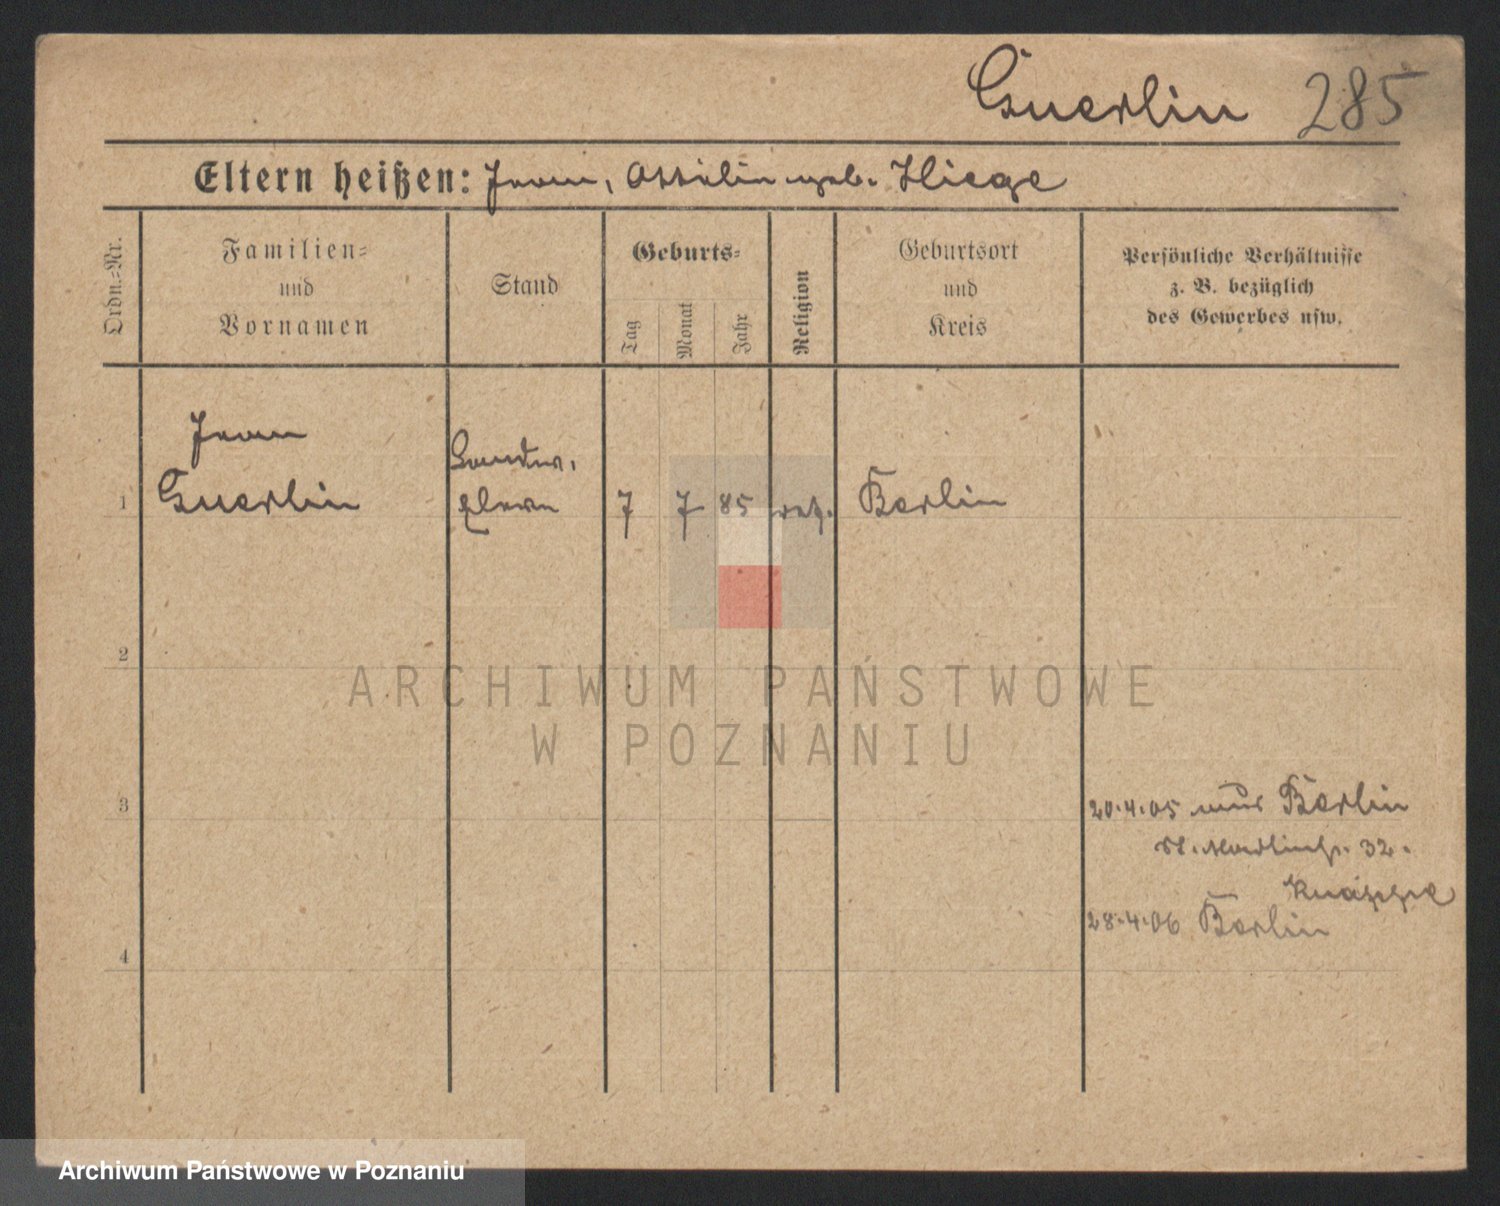 Guerlin 285
Eltern heißen: Jean, geb. Fliege
Ordn.-Nr.
Familien-
und
Vornamen
Stand
Geburts-
Tag
Monat
Jahr
Religion
Geburtsort
und
Kreis
Persönliche Verhältnisse
z. B. bezüglich
des Gewerbes usw.
Jean
1 Guerlin
7 7 85 Berlin
2
ARCHIWUM PAŃSTWOWE
W POZNANIU
3
20.4.05 Berlin
St. Martinstr. 32.
Knappe
28.4.06 Berlin
4
Archiwum Państwowe w Poznaniu